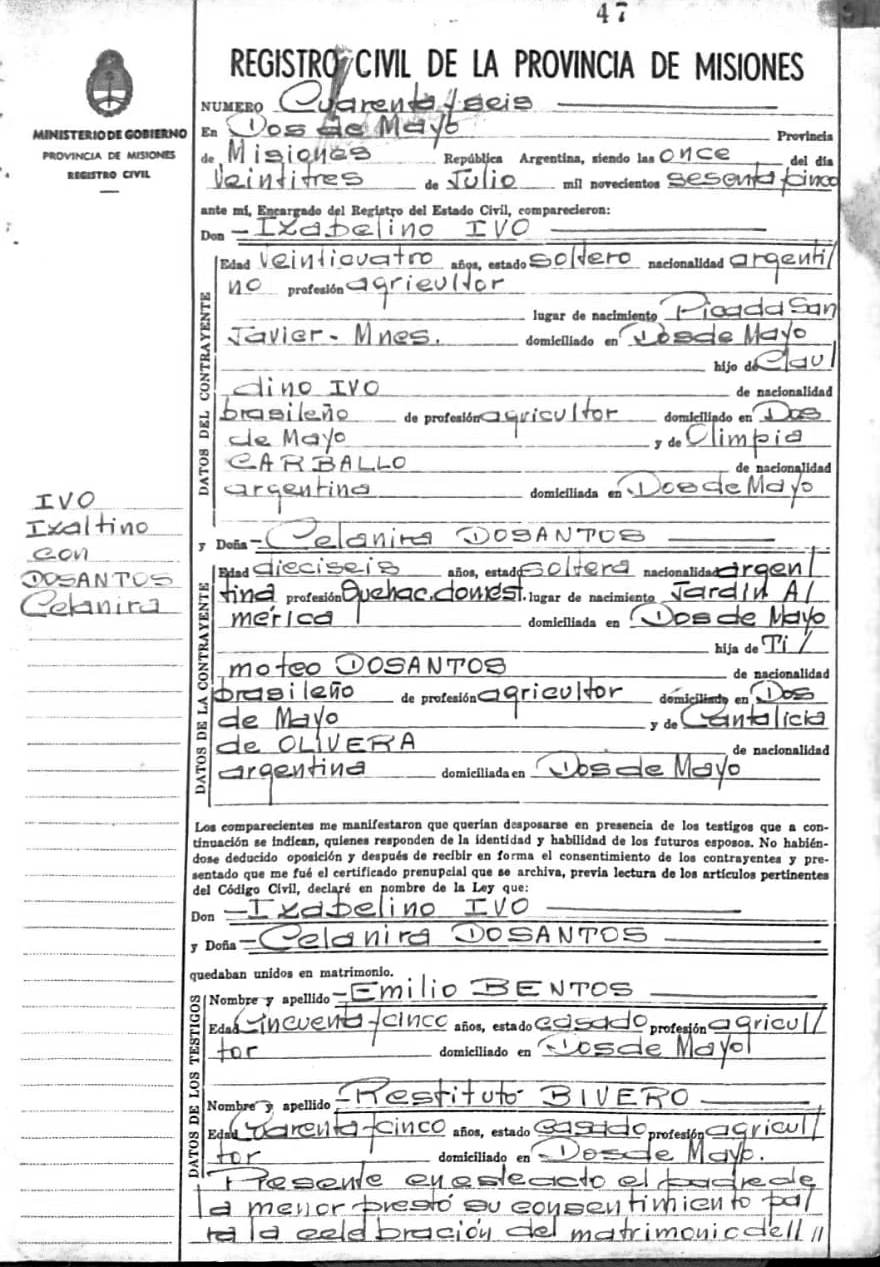 47
REGISTRO CIVIL DE LA PROVINCIA DE MISIONES
MINISTERIO DE GOBIERNO
PROVINCIA DE MISIONES
REGISTRO CIVIL
NUMERO Cuarenta y seis
En Dos de Mayo Provincia
de Misiones República Argentina, siendo las once del día
Veintitres de Julio mil novecientos sesenta y cinco
ante mí, Encargado del Registro del Estado Civil, comparecieron:
Don - Ixabelino IVO
DATOS DEL CONTRAYENTE
Edad veinticuatro años, estado soltero nacionalidad argenti/
no profesión agricultor
lugar de nacimiento Picada San
Javier - Mnes. domiciliado en Dos de Mayo
hijo de Clau/
dino IVO de nacionalidad
brasileño de profesión agricultor domiciliado en Dos
de Mayo y de Olimpia
CARBALLO de nacionalidad
argentina domiciliada en Dos de Mayo
IVO
Ixaltino
con
DOSANTOS
Celanira
y Doña - Celanira DOSANTOS
DATOS DE LA CONTRAYENTE
Edad dieciseis años, estado soltera nacionalidad argen/
tina profesión Quehac. domést. lugar de nacimiento Jardín A/
mérica domiciliada en Dos de Mayo
hija de Ti/
moteo DOSANTOS de nacionalidad
brasileño de profesión agricultor domiciliado en Dos
de Mayo y de Cantalicia
de OLIVERA de nacionalidad
argentina domiciliada en Dos de Mayo
Los comparecientes me manifestaron que querían desposarse en presencia de los testigos que a con-
tinuación se indican, quienes responden de la identidad y habilidad de los futuros esposos. No habién-
dose deducido oposición y después de recibir en forma el consentimiento de los contrayentes y pre-
sentado que me fué el certificado prenupcial que se archiva, previa lectura de los artículos pertinentes
del Código Civil, declaré en nombre de la Ley que:
Don - Ixabelino IVO
y Doña - Celanira DOSANTOS
quedaban unidos en matrimonio.
DATOS DE LOS TESTIGOS
Nombre y apellido - Emilio BENTOS
Edad Cincuenta y cinco años, estado casado profesión agricul/
tor domiciliado en Dos de Mayo
Nombre y apellido - Restituto BIVERO
Edad Cuarenta y cinco años, estado casado profesión agricul/
tor domiciliado en Dos de Mayo.
Presente en este acto el padre de
la menor prestó su consentimiento pa/
ra la celebración del matrimonio del//